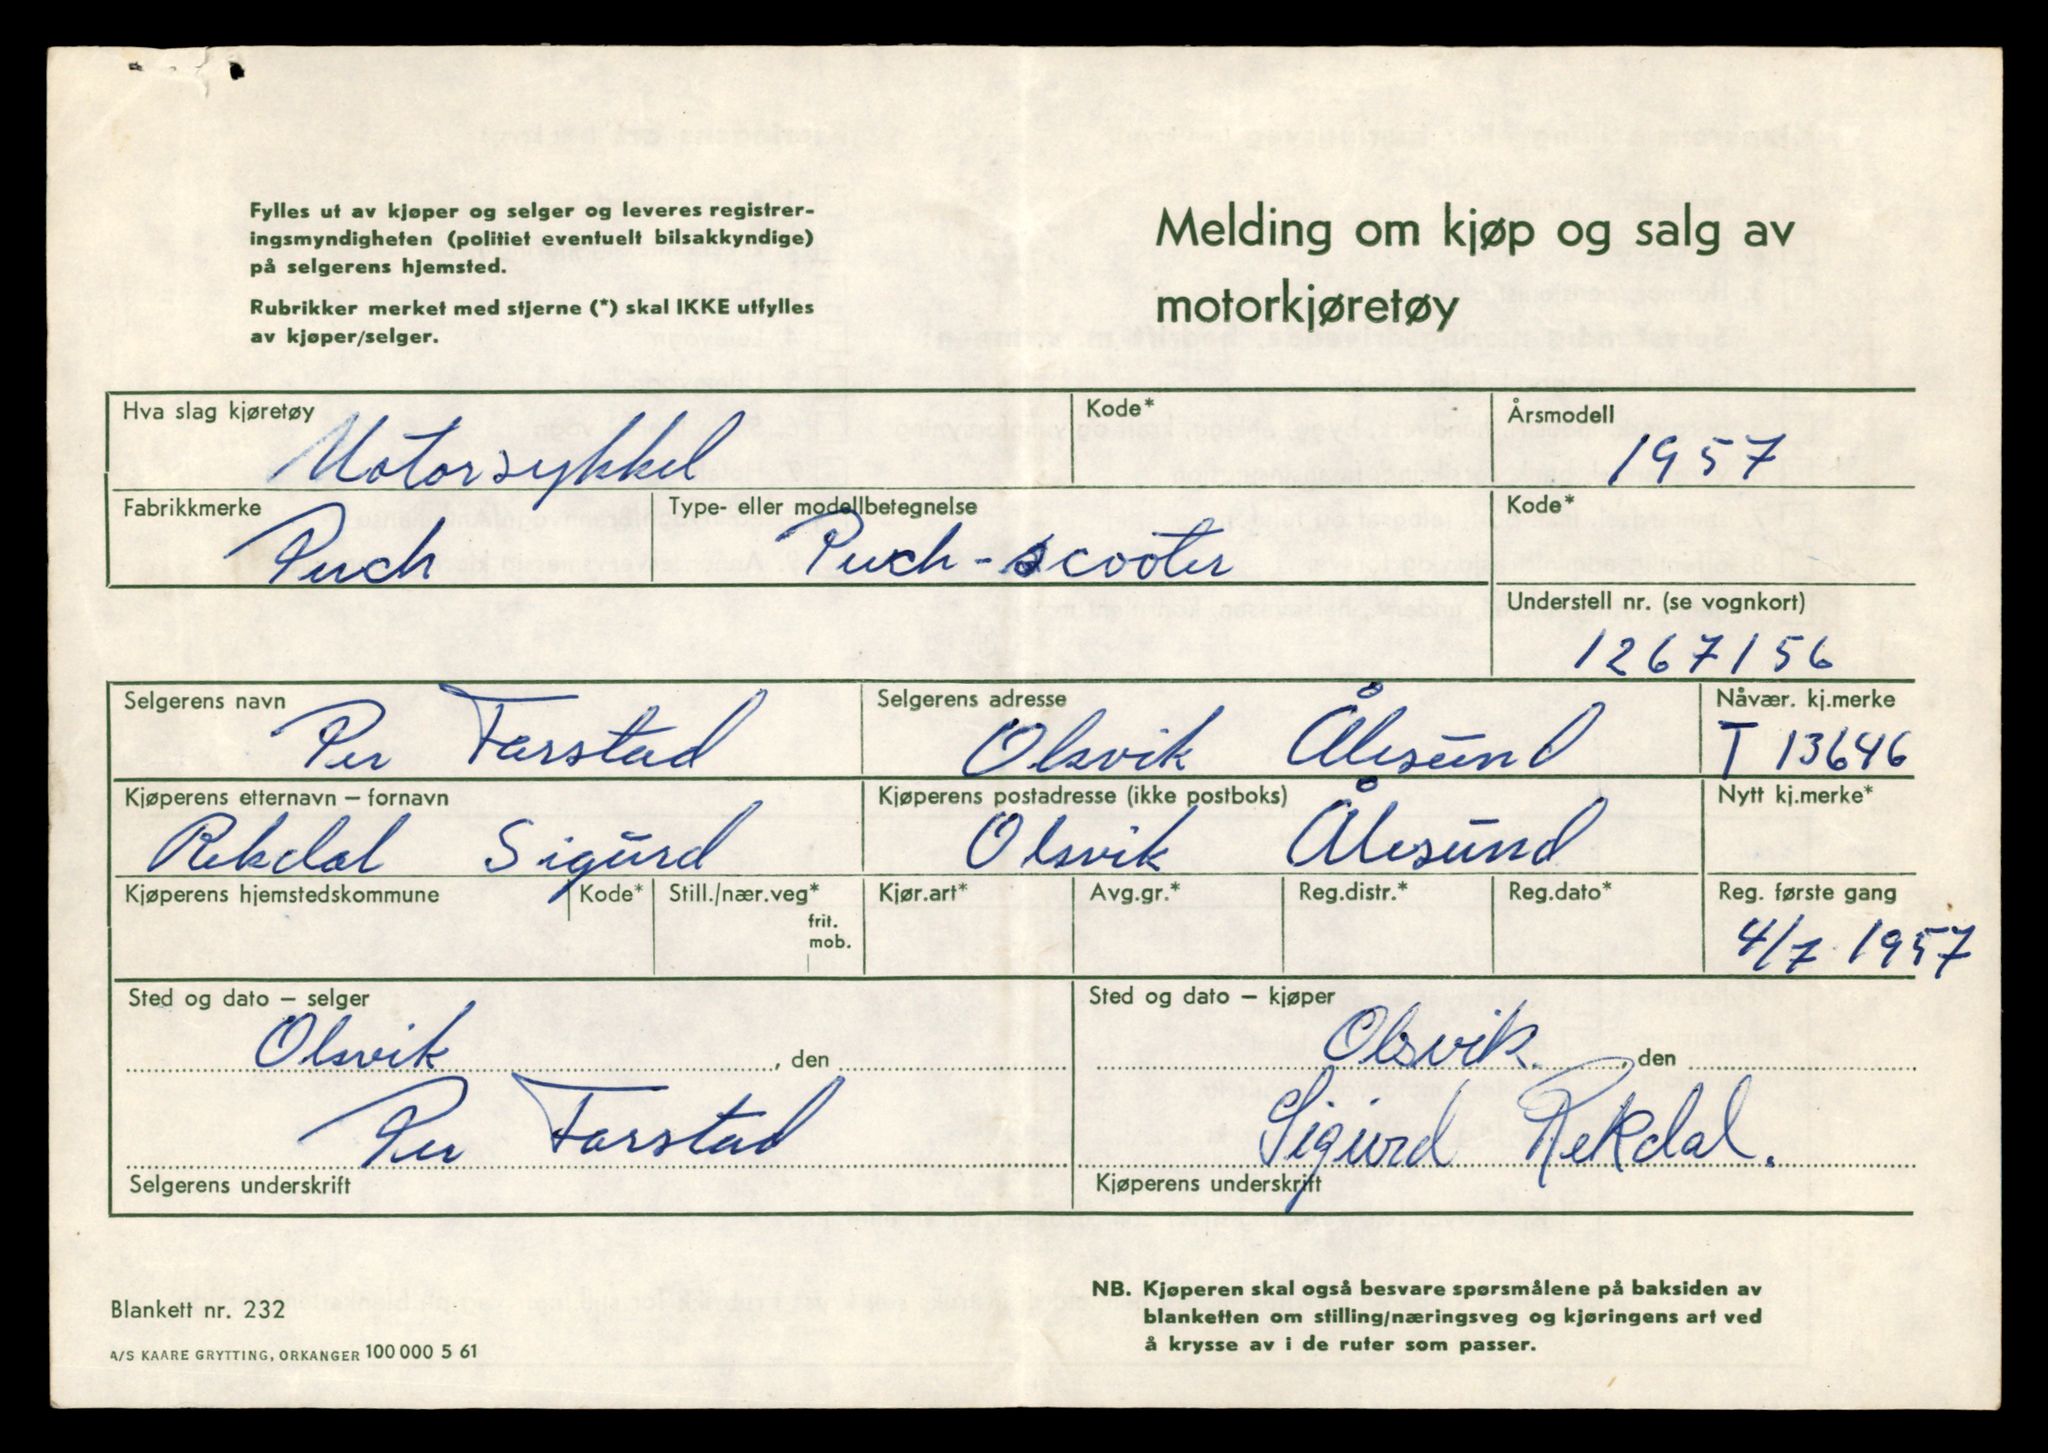 Fylles ut av kjøper og selger og leveres registrer-
ingsmyndigheten (politiet eventuelt bilsakkyndige)
på selgerens hjemsted.
Rubrikker merket med stjerne (*) skal IKKE utfylles
av kjøper/selger.
Melding om kjøp og salg av
motorkjøretøy
Hva slag kjøretøy
Motorsykkel
Kode*
Årsmodell
1957
Fabrikkmerke
Puch
Type- eller modellbetegnelse
Puch-scooter
Kode*
Understell nr. (se vognkort)
1267156
Selgerens navn
Per Farstad
Selgerens adresse
Olsvik Ålesund
Nåvær. kj.merke
T 13646
Kjøperens etternavn – fornavn
Rekdal Sigurd
Kjøperens postadresse (ikke postboks)
Olsvik Ålesund
Nytt kj.merke*
Kjøperens hjemstedskommune
Kode*
Still./nær.veg*
frit.
mob.
Kjør.art*
Avg.gr.*
Reg.distr.*
Reg.dato*
Reg. første gang
4/7 1957
Sted og dato – selger
Olsvik , den
Per Farstad
Selgerens underskrift
Sted og dato – kjøper
Olsvik , den
Sigurd Rekdal.
Kjøperens underskrift
Blankett nr. 232
A/S KAARE GRYTTING, ORKANGER 100 000 5 61
NB. Kjøperen skal også besvare spørsmålene på baksiden av
blanketten om stilling/næringsveg og kjøringens art ved
å krysse av i de ruter som passer.